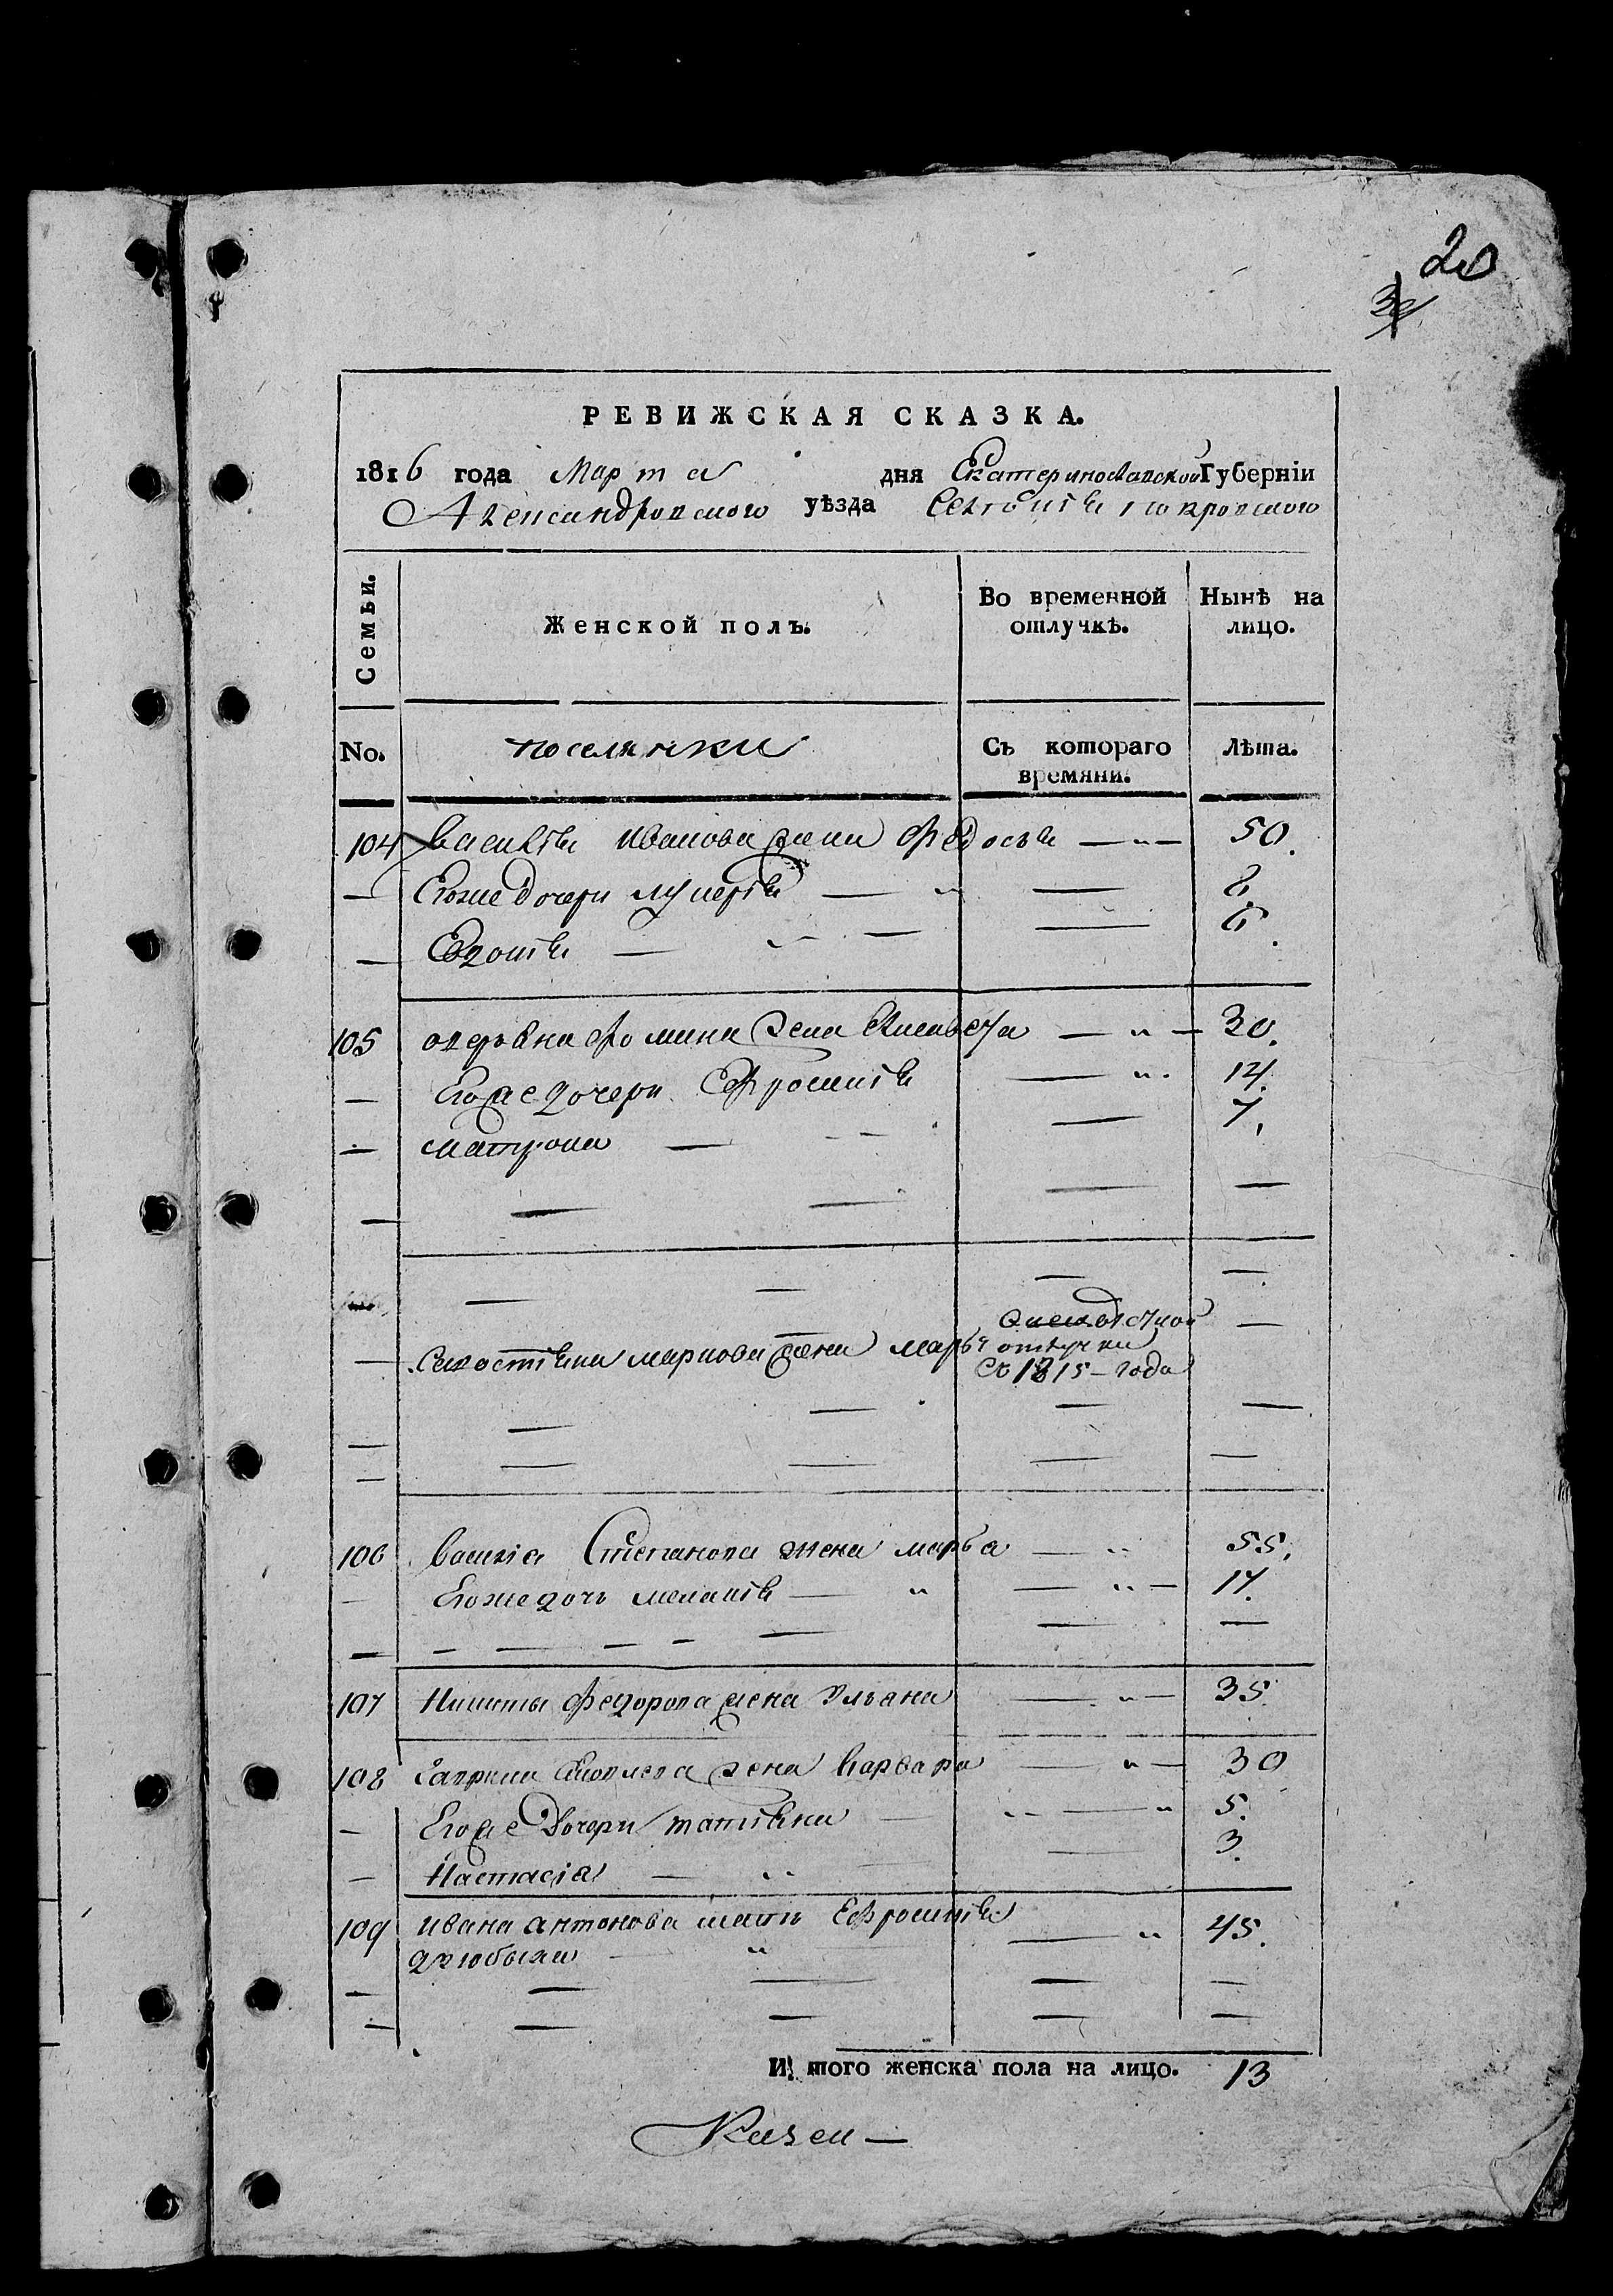 20
РЕВИЖСКАЯ СКАЗКА.
1816 года Марта дня Екатеринославской Губерніи
Александровского уѣзда Селенія покровского
Семьи.
Женской полъ.
Во временной отлучкѣ.
Нынѣ на лицо.
No.
поселянки
Съ котораго времяни.
Лѣта.
104 Василія Иванова жена Федосья — „ — 50.
— Егоже дочери лукерія — „ — 8.
— Евдокія — „ — — 6.
105 аверьяна Фомина жена Елисавета — „ — 30.
— Егоже дочери Ефросинія — „ 14.
— матрона — — — 7.
Севостіяна маркова жена марья
отлучки
съ 1815 – года
106 Василія Степанова жена марья — „ 55.
— Егоже дочь меланія — „ — „ — 17.
107 Никиты Федорова жена Ульяна — „ — 35.
108 Гаврилы жена Варвара — „ — 30
— Егоже Дочери татіяна — „ — „ 5.
— Настасія — „ — 3.
109 Ивана антонова мать Ефросинія — „ 45.
И того женска пола на лицо. 13